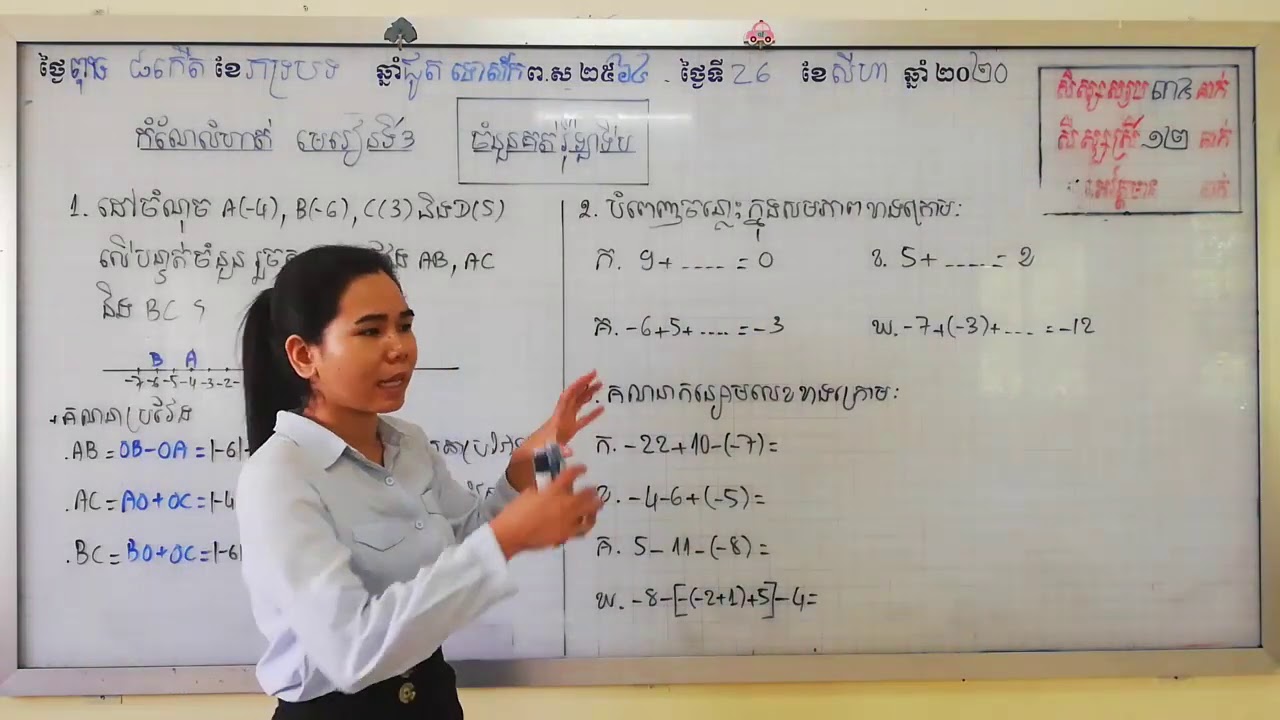 ថ្ងៃពុធ ៨កើត ខែភទ្របទ ឆ្នាំជូត ទោស័ក ព.ស ២៥៦៤ . ថ្ងៃទី 26 ខែសីហា ឆ្នាំ ២០២០
សិស្សសរុប ៣៤ នាក់
សិស្សស្រី ១២ នាក់
អវត្តមាន នាក់
កំណែលំហាត់ មេរៀនទី3 ចំនួនគត់រ៉ឺឡាទីប
1. ដៅចំណុច A(-4), B(-6), C(3) និងD(5)
លើបន្ទាត់ចំនួន រួច AB, AC
និង BC ។
B A
-7 -6 -5 -4 -3 -2
គណនាប្រវែង
.AB = OB-OA = |-6|
.AC = AO+OC = |-4
.BC = BO+OC = |-6|
2. បំពេញចន្លោះក្នុងសមភាពខាងក្រោម:
ក. 9 + .... = 0 ខ. 5 + .... = 2
គ. -6+5+ .... = -3 ឃ. -7+(-3)+ .... = -12
. គណនាកន្សោមលេខខាងក្រោម:
ក. -22+10-(-7)=
ខ. -4-6+(-5)=
គ. 5-11-(-8)=
ឃ. -8-[-(-2+1)+5]-4=